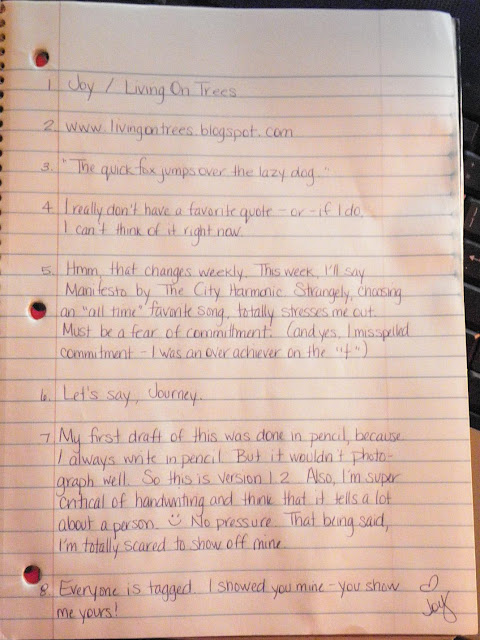 1. Joy / Living On Trees
2. www.livingontrees.blogspot.com
3. "The quick fox jumps over the lazy dog."
4. I really don't have a favorite quote - or - if I do,
I can't think of it right now.
5. Hmm, that changes weekly. This week, I'll say
Manifesto by The City Harmonic. Strangely, choosing
an "all time" favorite song, totally stresses me out.
Must be a fear of committment. (and yes, I misspelled
commitment - I was an over achiever on the "t")
6. Let's say, Journey.
7. My first draft of this was done in pencil, because
I always write in pencil. But it wouldn't photo-
graph well. So this is version 1.2. Also, I'm super
critical of handwriting and think that it tells a lot
about a person. No pressure. That being said,
I'm totally scared to show off mine.
8. Everyone is tagged. I showed you mine - you show
me yours!
Joy